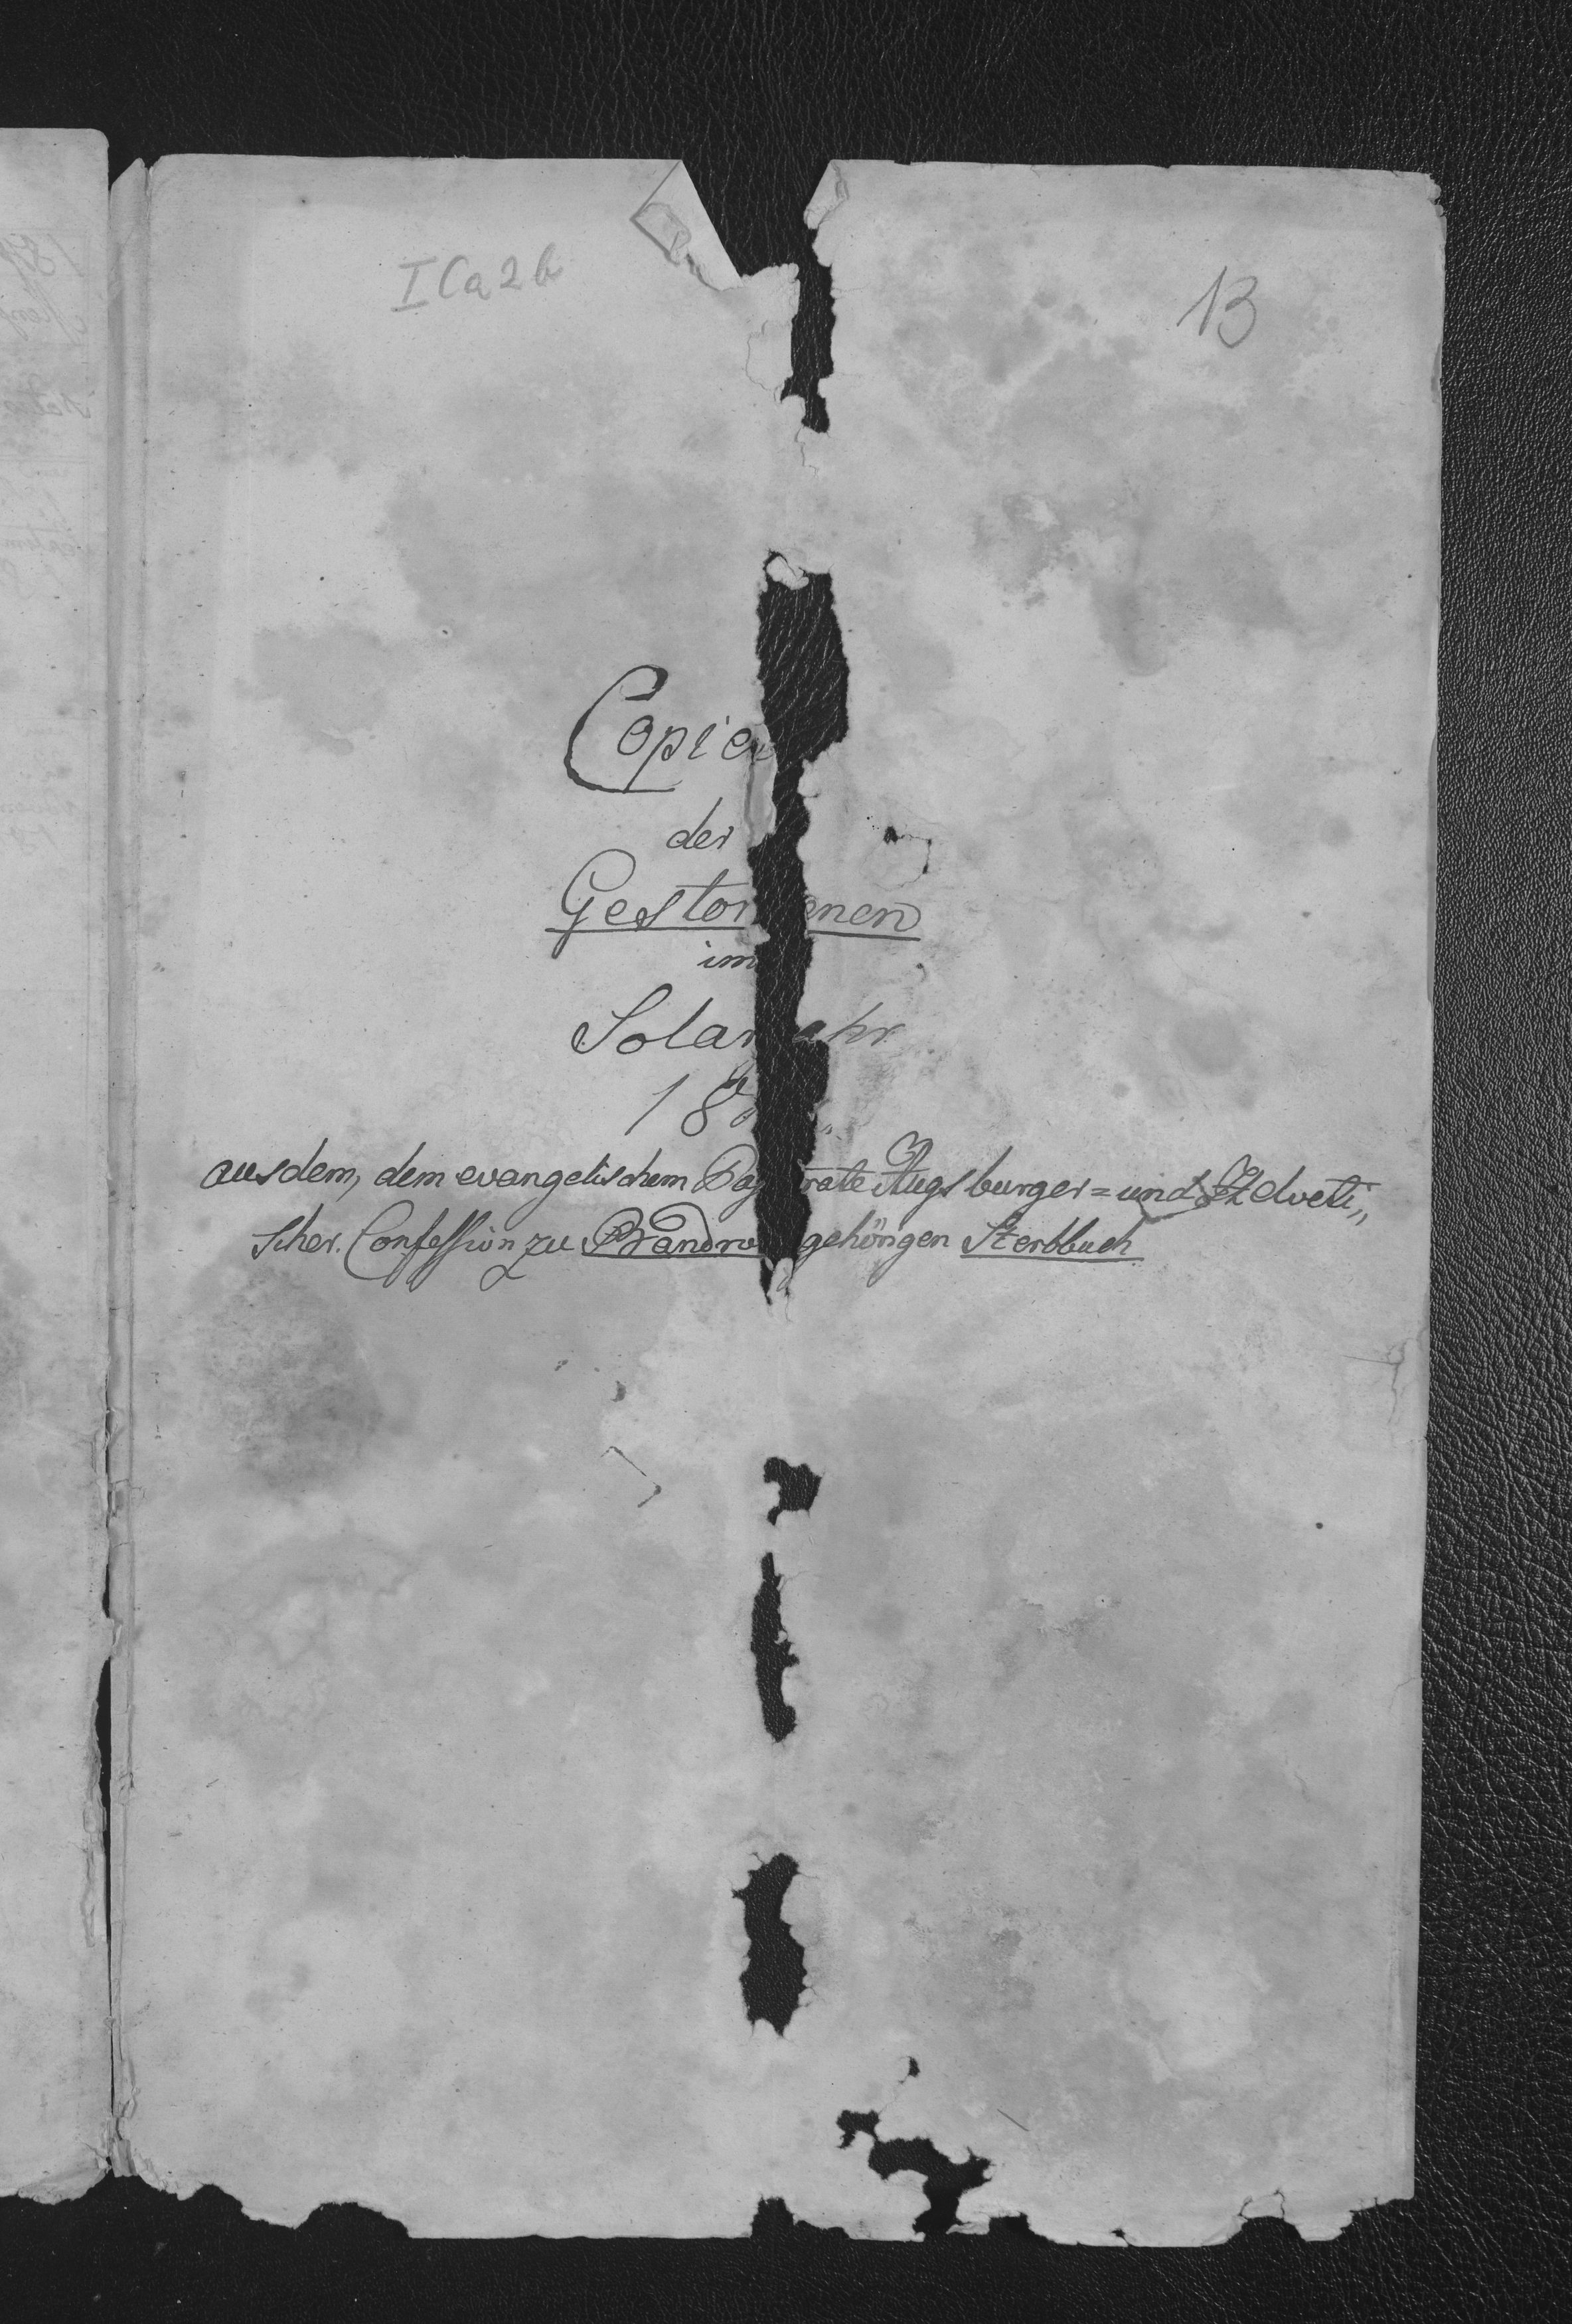 I Ca 2 b
13
Copie
der
Gestor enen
im
Solar ahr
18
aus dem, dem evangelischem Pas rate Augsburger= und Helveti„
scher. Confession zu Brandro gehörigen Sterbbuch